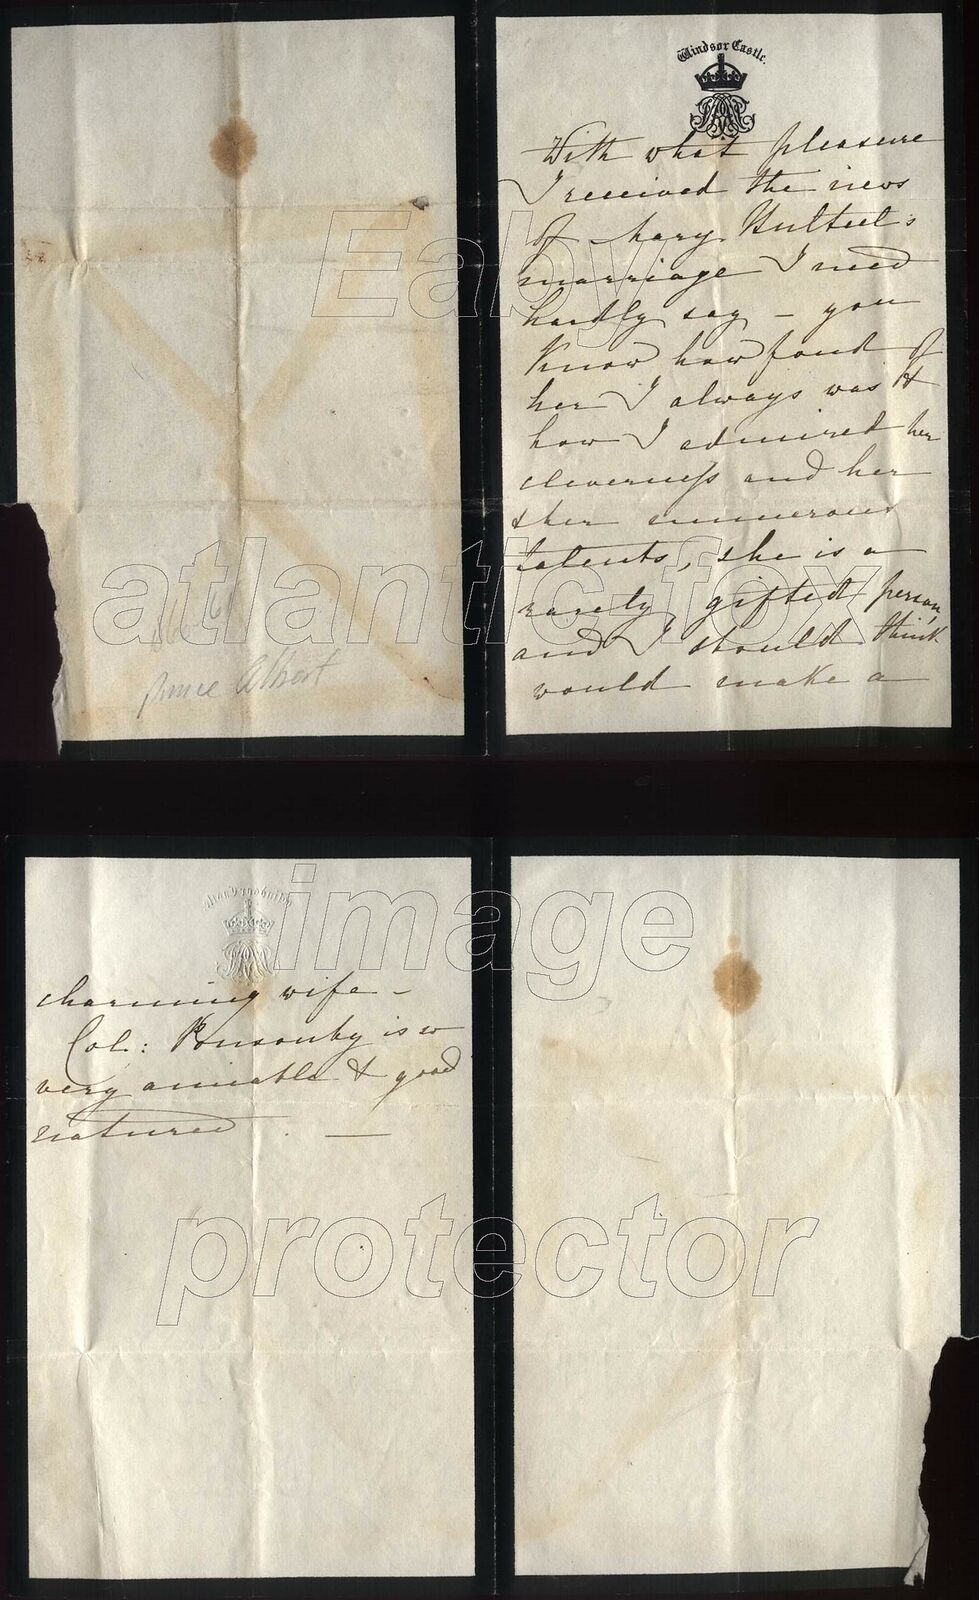 Windsor Castle.
With what pleasure
I received the news
of Mary Bulteel's
marriage I need
hardly say – you
know how fond of
her I always was &
how I admired her
cleverness and her
& her numerous
talents, she is a
rarely gifted person,
and I should think
would make a
Prince Albert
charming wife –
Col: Ponsonby is so
very amiable & good
natured. —
Eaby
atlantic-fox
image
protector